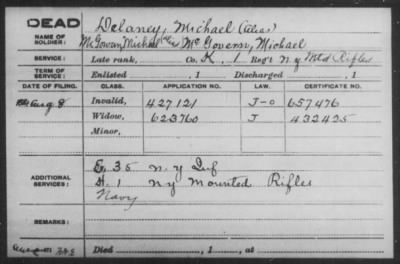 DEAD
NAME OF SOLDIER:
Delaney, Michael (Alias)
McGowan, Michael McGovern, Michael
SERVICE: Late rank, Co. K, 1 Reg't N.Y. Mtd Rifles
TERM OF SERVICE: Enlisted , 1 Discharged , 1
DATE OF FILING. CLASS. APPLICATION NO. LAW. CERTIFICATE NO.
Aug 8 Invalid, 427121 J-O 657476
Widow, 623760 J 432425
Minor,
ADDITIONAL SERVICES: E, 35 N.Y. Inf
H. 1 N.Y Mounted Rifles
Navy
REMARKS:
Died , 1 , at